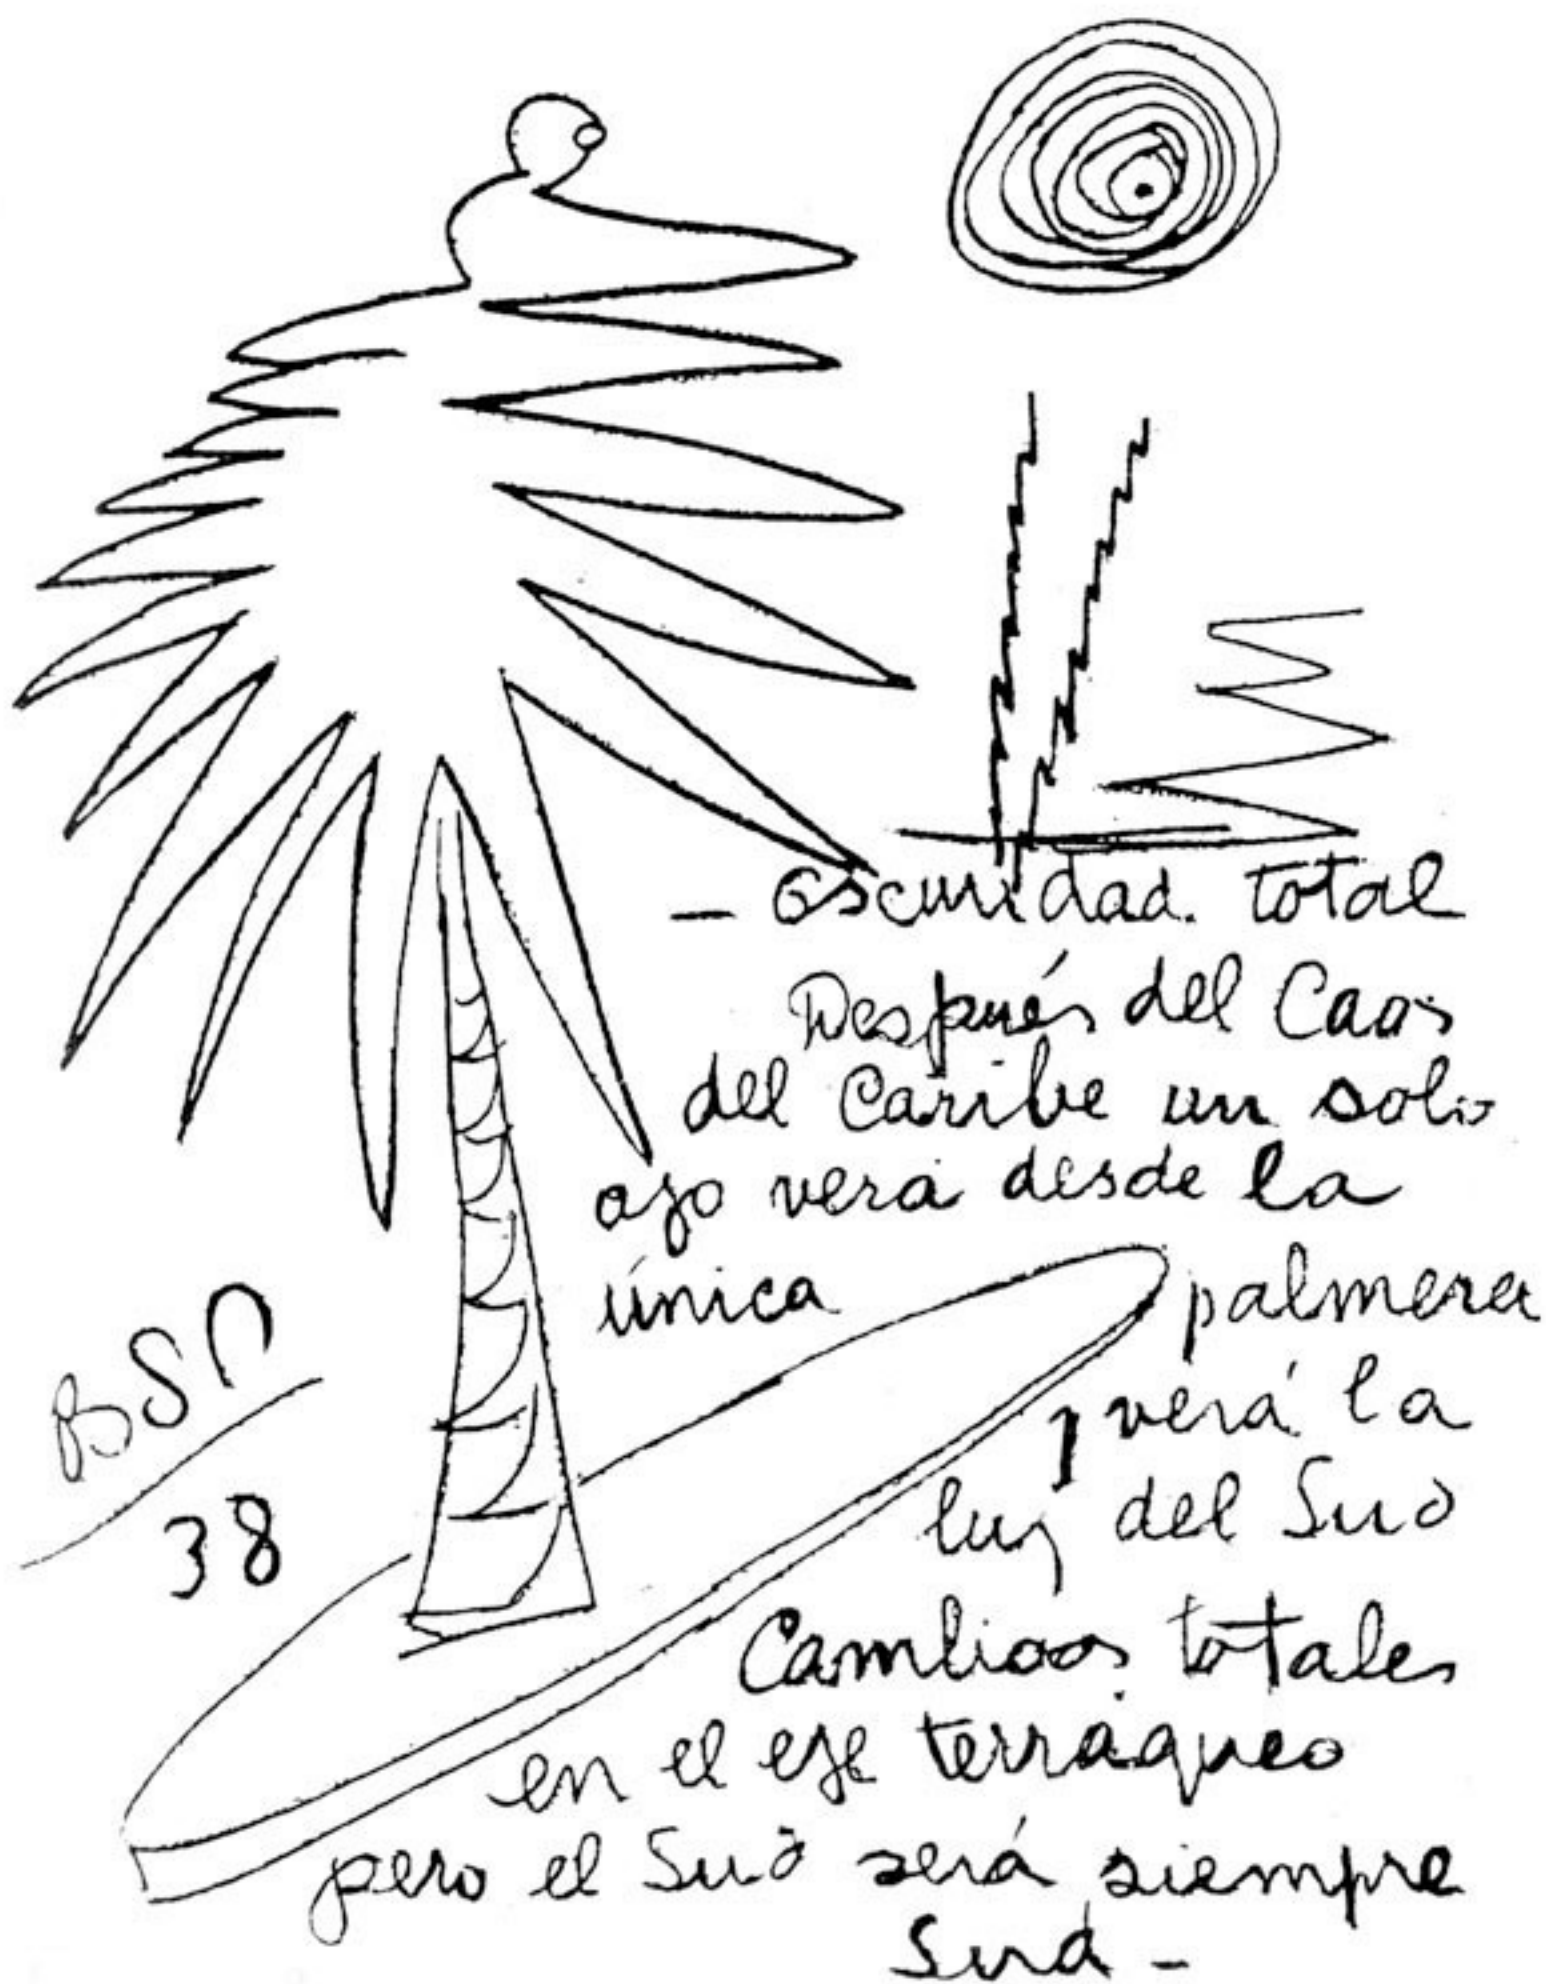 – Oscuridad. total
Después del Caos
del Caribe un solo
ojo verá desde la
única palmera
y verá la
luz del Sud
Cambios totales
en el eje terráqueo
pero el Sud será siempre
Sud –
BSP
38